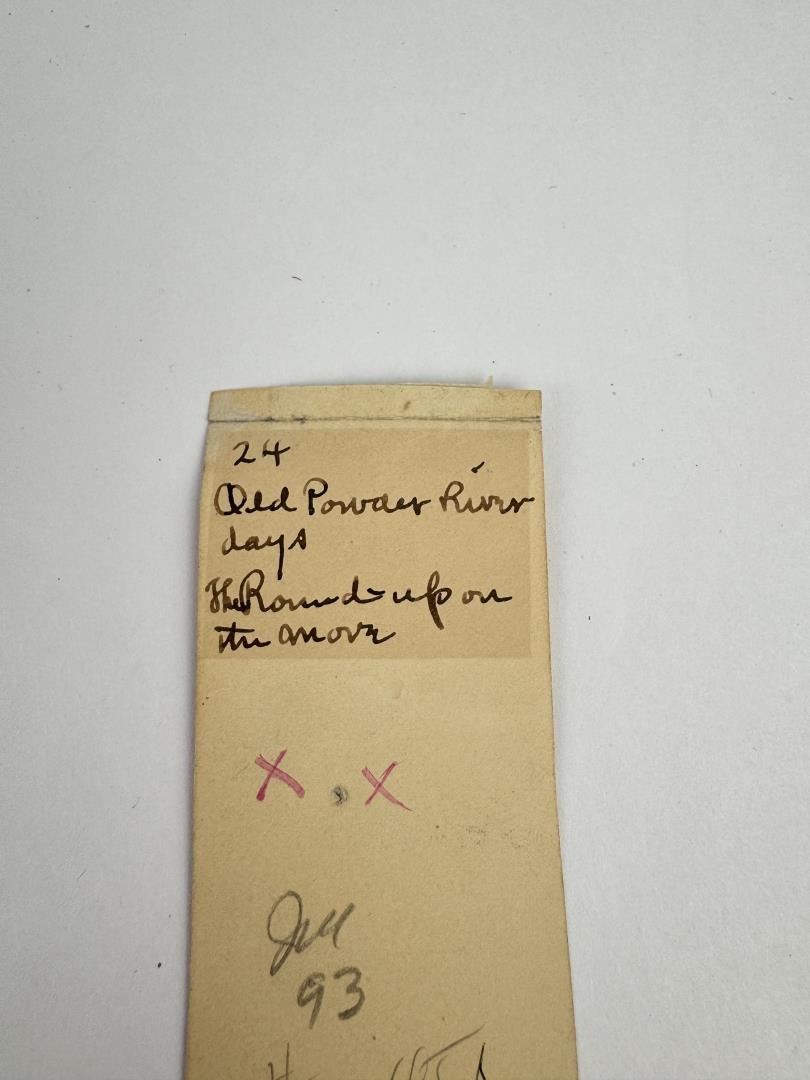 24
Old Powder River
days
The Round-up on
the move
X . X
93